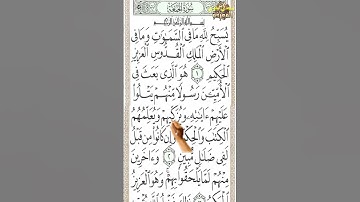 سُورَةُ الجُمُعَة
بِسْمِ اللَّهِ الرَّحْمَٰنِ الرَّحِيمِ
يُسَبِّحُ لِلَّهِ مَا فِي السَّمَٰوَٰتِ وَمَا فِي
الْأَرْضِ الْمَلِكِ الْقُدُّوسِ الْعَزِيزِ
الْحَكِيمِ ١ هُوَ الَّذِي بَعَثَ فِي
الْأُمِّيِّينَ رَسُولًا مِّنْهُمْ يَتْلُوا
عَلَيْهِمْ ءَايَٰتِهِ وَيُزَكِّيهِمْ وَيُعَلِّمُهُمُ
الْكِتَٰبَ وَالْحِكْمَةَ وَإِن كَانُوا مِن قَبْلُ
لَفِي ضَلَٰلٍ مُّبِينٍ ٢ وَءَاخَرِينَ
مِنْهُمْ لَمَّا يَلْحَقُوا بِهِمْ وَهُوَ الْعَزِيزُ